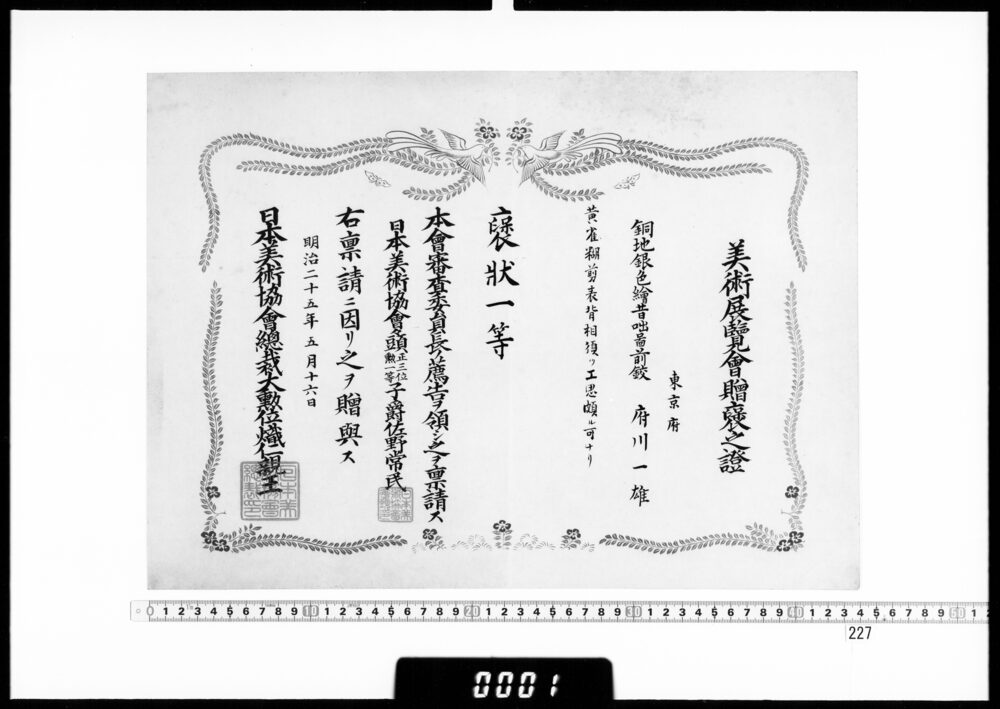 美術展覽會贈襃之證
東京府
銅地銀色繪昔咄畧前鉸 府川一雄
黄雀糊剪表背相須ッ工思頗ル可ナリ
襃狀一等
本會審査委員長ノ薦告ヲ領シ之ヲ禀請ス
日本美術協會々頭正三位勲一等子爵佐野常民
右禀請ニ因リ之ヲ贈與ス
明治二十五年五月十六日
日本美術協會總裁大勲位熾仁親王
0 1 2 3 4 5 6 7 8 9 10 1 2 3 4 5 6 7 8 9 20 1 2 3 4 5 6 7 8 9 30 1 2 3 4 5 6 7 8 9 40 1 2 3 4 5 6 7 8 9 50 1 2
227
0001